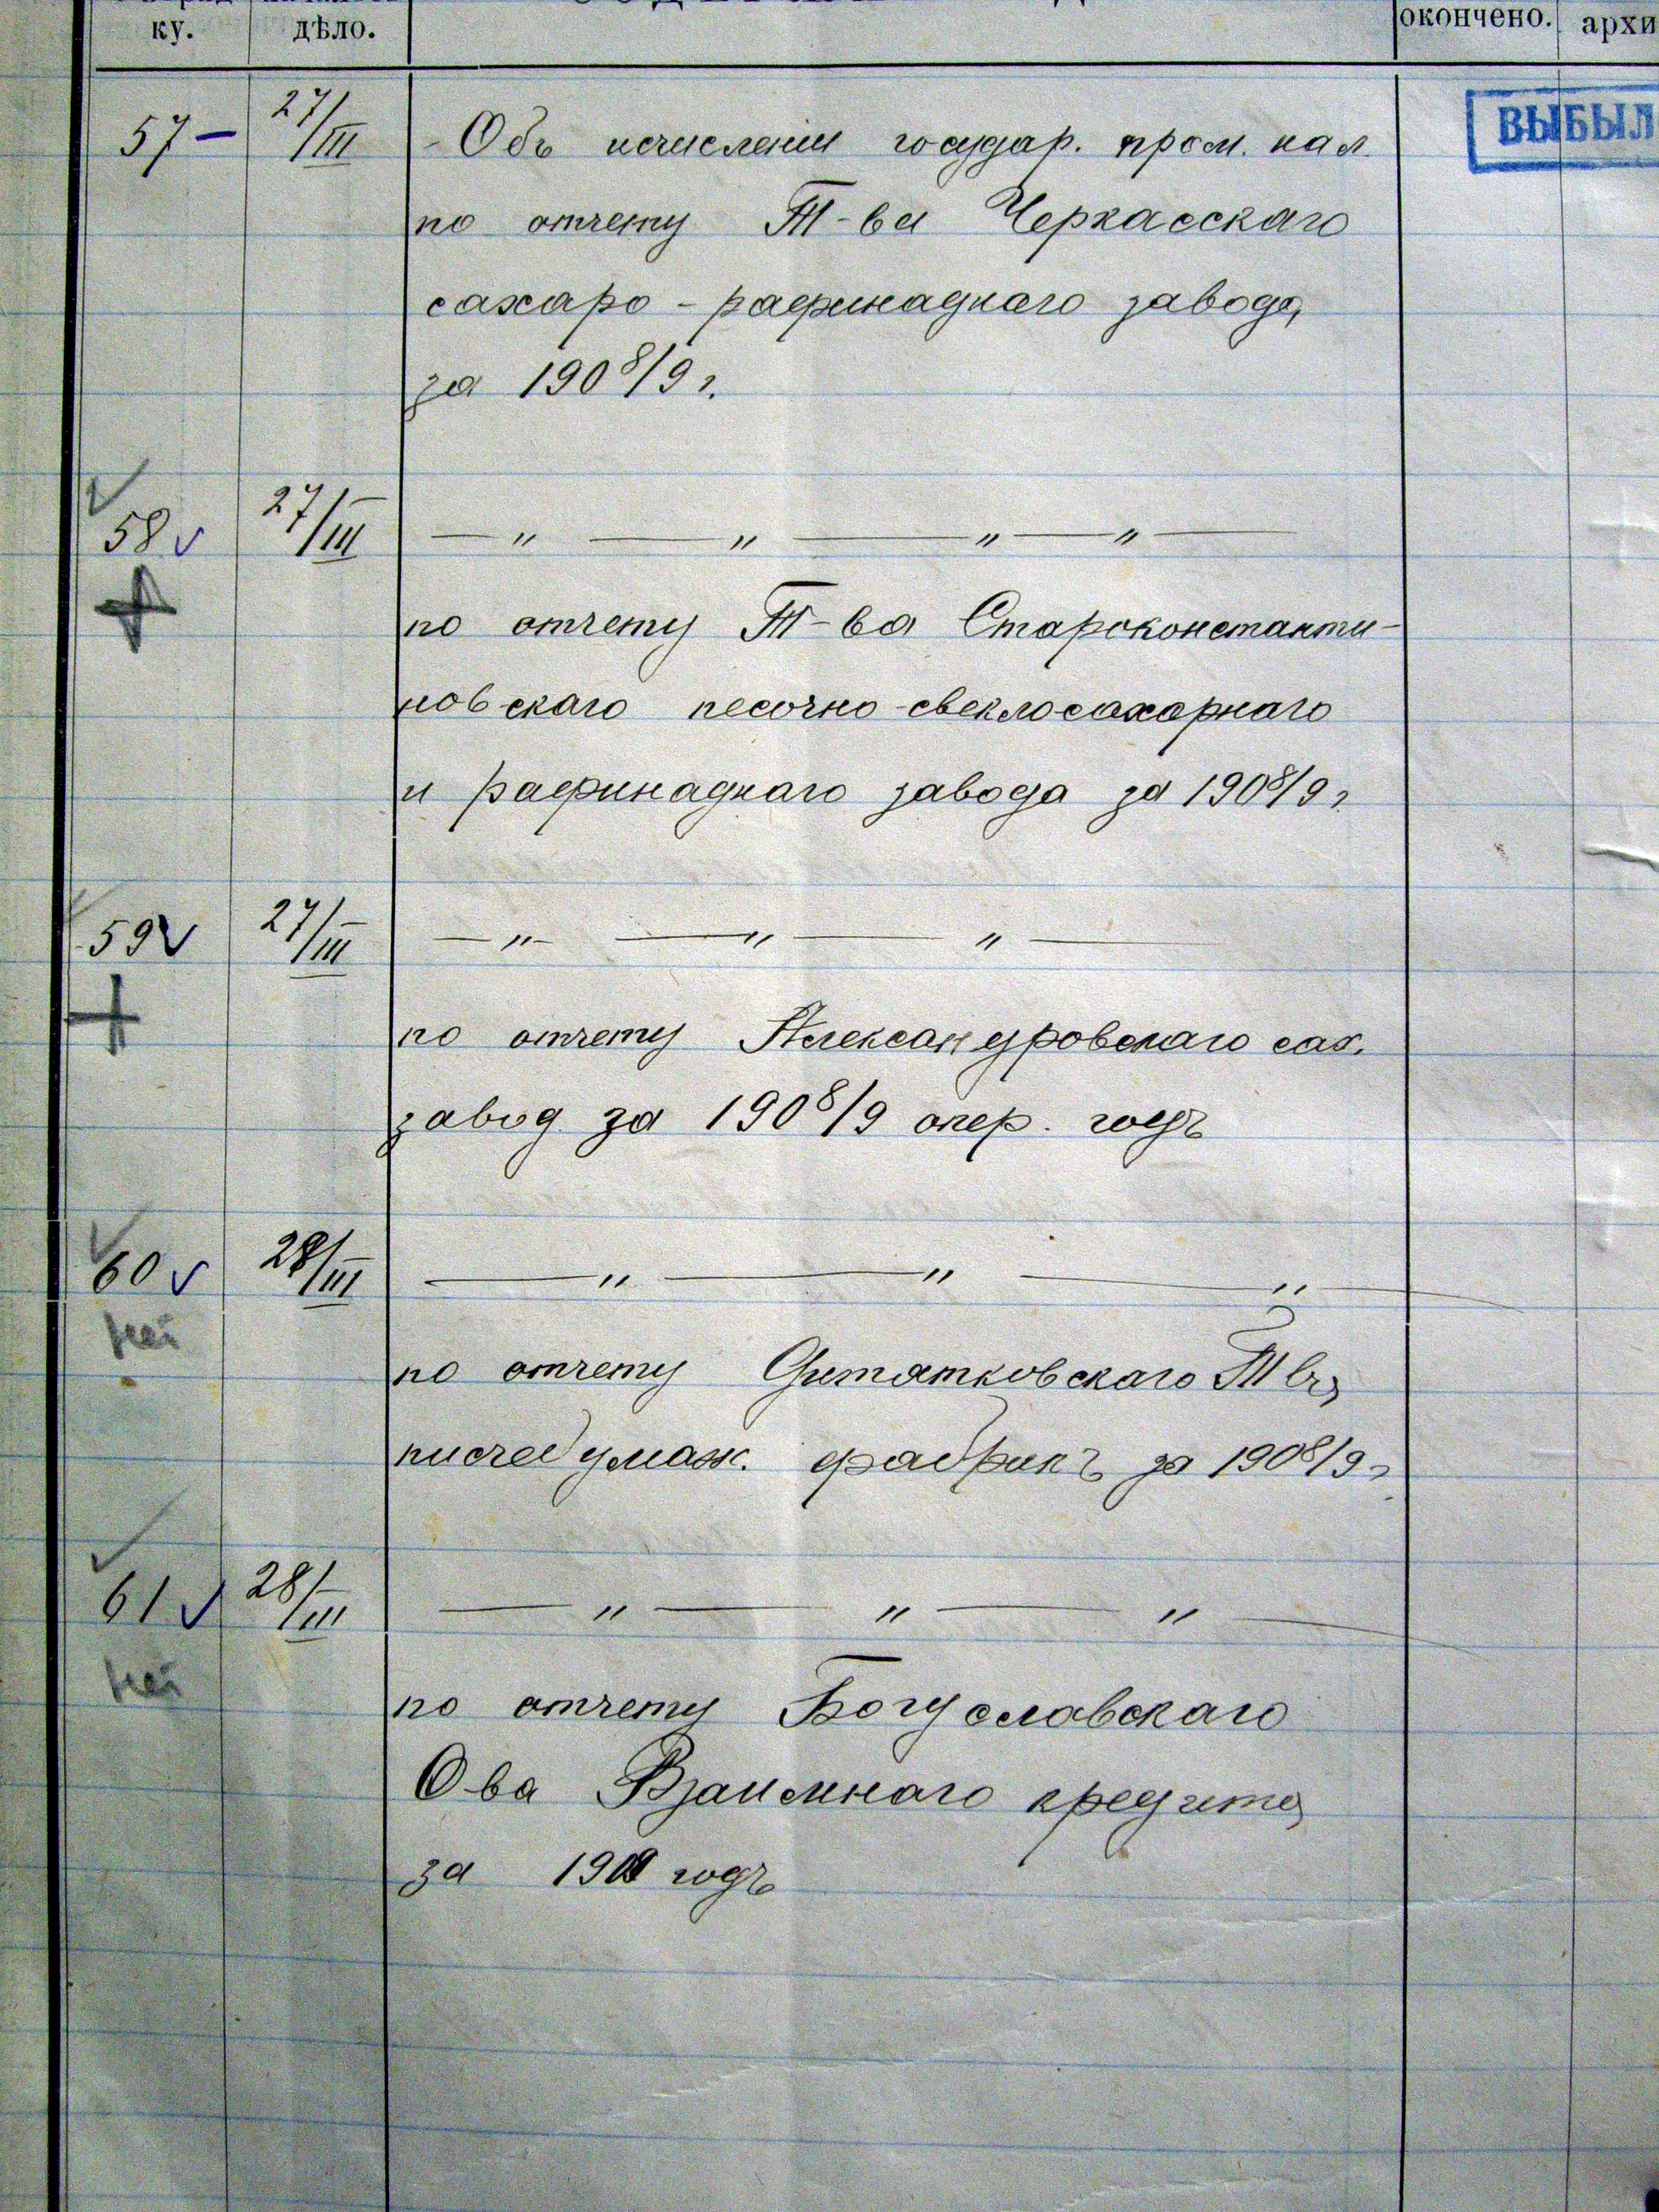 ку. дѣло. окончено. архи
57 – 27/III Объ исчисленіи государ. пром. нал.
ВЫБЫЛ
по отчету Т-ва Черкасскаго
сахаро-рафинаднаго завода
за 1908/9 г.
58 v 27/III — " — " — " — " —
по отчету Т-ва Староконстанти-
новскаго песочно-свеклосахарнаго
и рафинаднаго завода за 1908/9 г.
59 v 27/III — " — " — " —
по отчету Александровскаго сах.
завод за 1908/9 опер. годъ
60 v 28/III — " — " — "
по отчету Дитятковскаго Т ва
писчебумаж. фабрикъ за 1908/9 г
61 v 28/III — " — " — " —
по отчету Богуславскаго
О-ва Взаимнаго кредита
за годъ